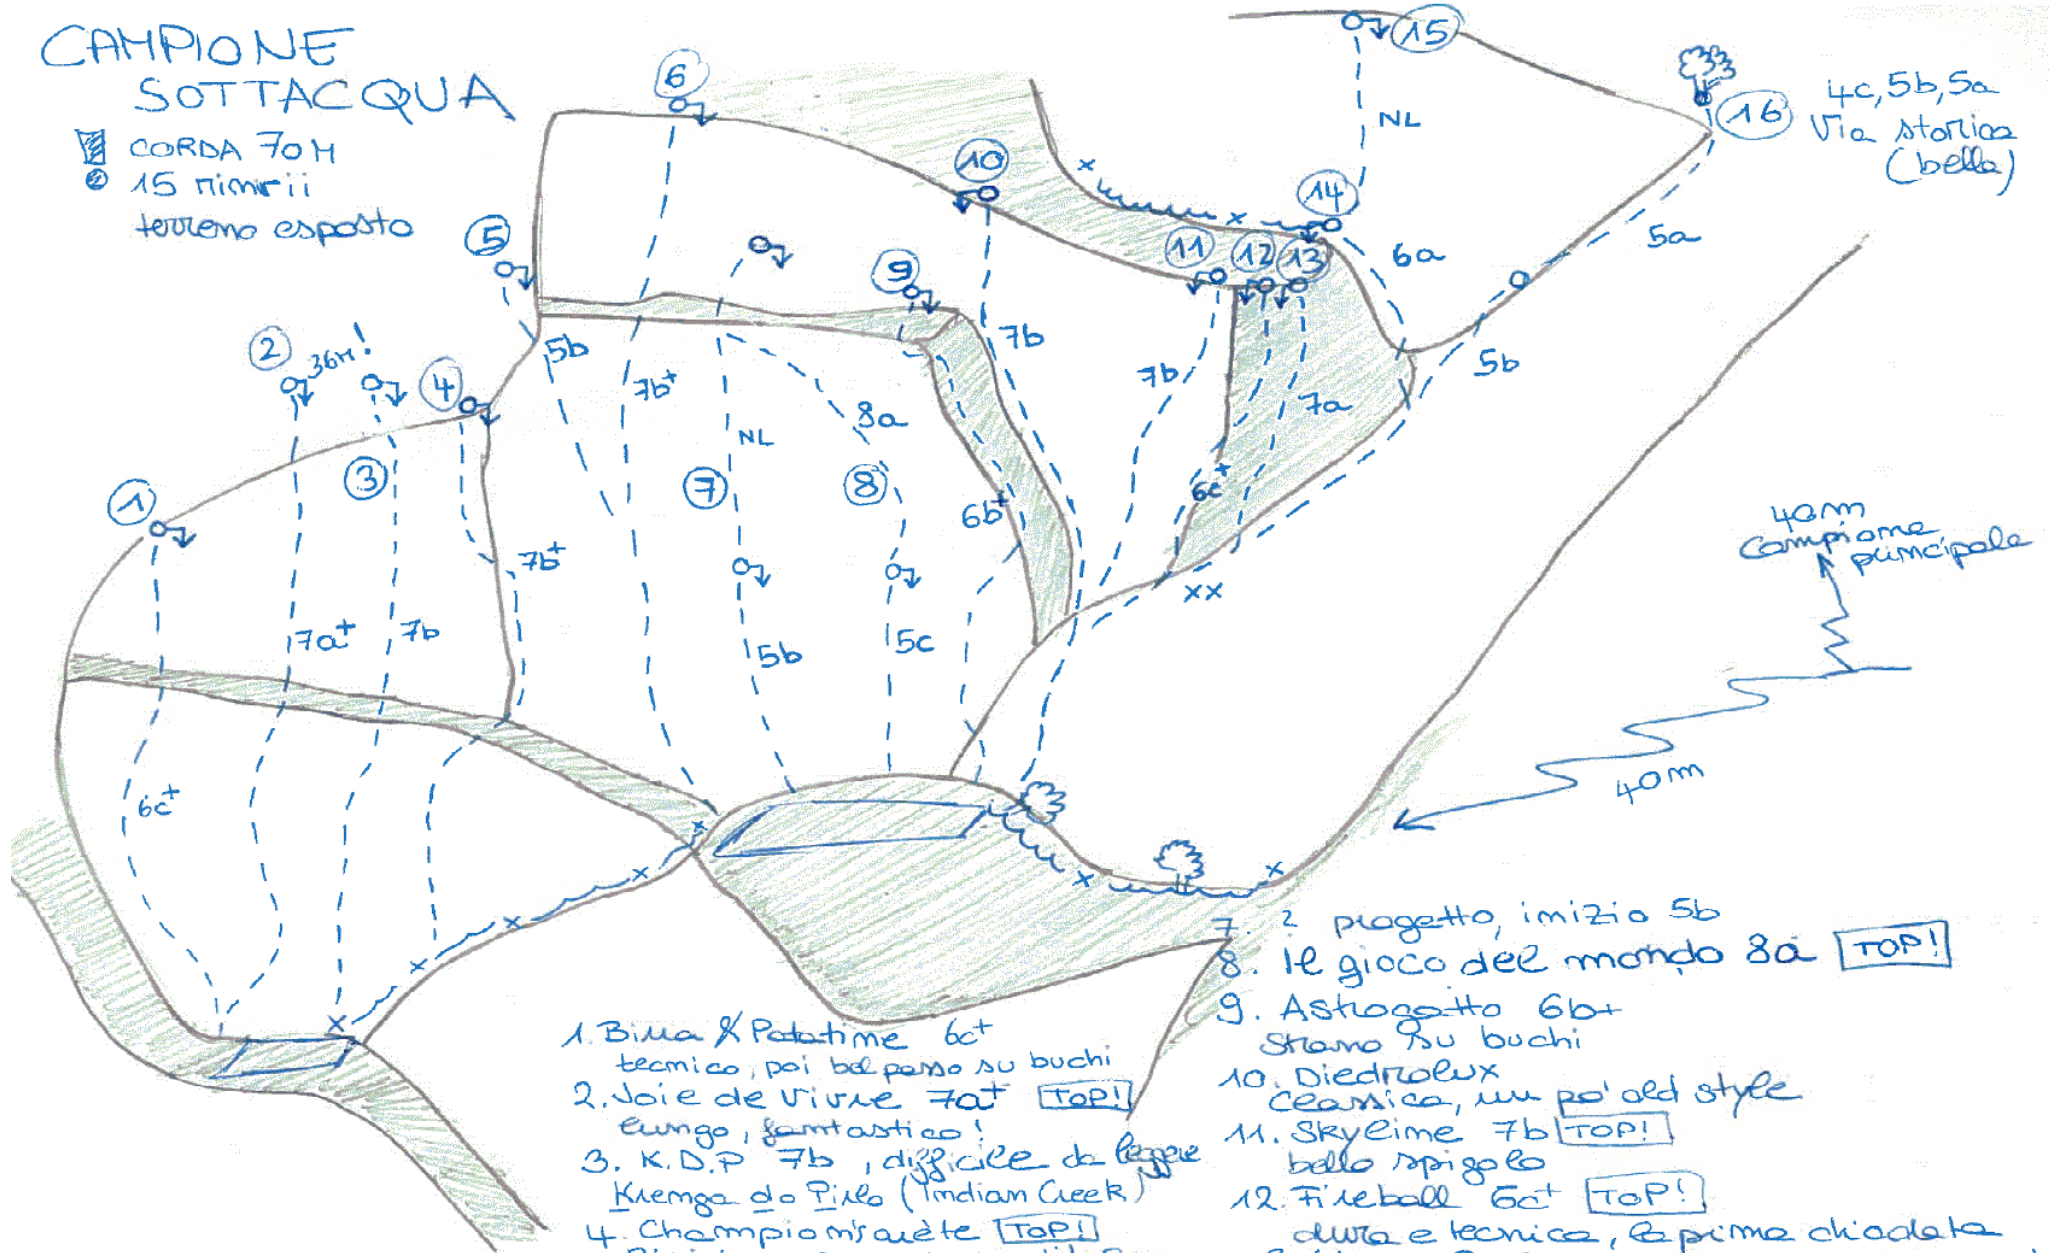 CAMPIONE
SOTTACQUA
CORDA 70M
15 rinvii
terreno esposto
6
15
NL
16
4c, 5b, 5a
Via storica
(bella)
10
14
5
11
12
13
6a
5a
9
2
36M!
4
5b
7b+
7b
7b
7a
5b
8a
NL
3
7
8
1
6b+
6c+
7b+
40m
Campione
principale
xx
7a+
7b
5b
5c
6c+
40m
1. Birra & Patatine 6c+
tecnico, poi bel passo su buchi
2. Joie de Vivre 7a+ TOP!
lungo, fantastico!
3. K.D.P 7b, difficile da leggere
Krenga do Pirlo (Indian Creek)
4. Champion's arète TOP!
7. ? progetto, inizio 5b
8. Il gioco del mondo 8a TOP!
9. Astrogatto 6b+
strano su buchi
10. Diedrolux
classica, un po' old style
11. Skyline 7b TOP!
bello spigolo
12. Fireball 6c+ TOP!
dura e tecnica, la prima chiodata